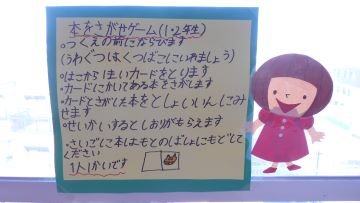 本をさがせゲーム(1・2年生)
・つくえの前にならびます
(うわぐつはくつばこにいれましょう)
・はこから1まいカードをとります
・カードにかいてある本をさがします
・カードとさがした本をとしょいいんにみ
せます
・せいかいするとしおりがもらえます
・さいごに本はもとのばしょにもどして
ください
1人1かいです